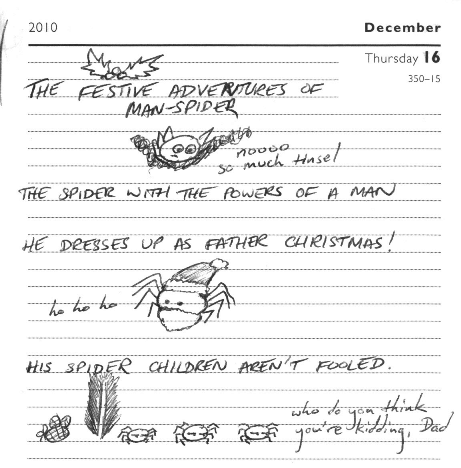 2010 December
Thursday 16
350–15
THE FESTIVE ADVENTURES OF
MAN-SPIDER
noooo
so much tinsel
THE SPIDER WITH THE POWERS OF A MAN
HE DRESSES UP AS FATHER CHRISTMAS!
ho ho ho
HIS SPIDER CHILDREN AREN'T FOOLED.
who do you think
you're kidding, Dad